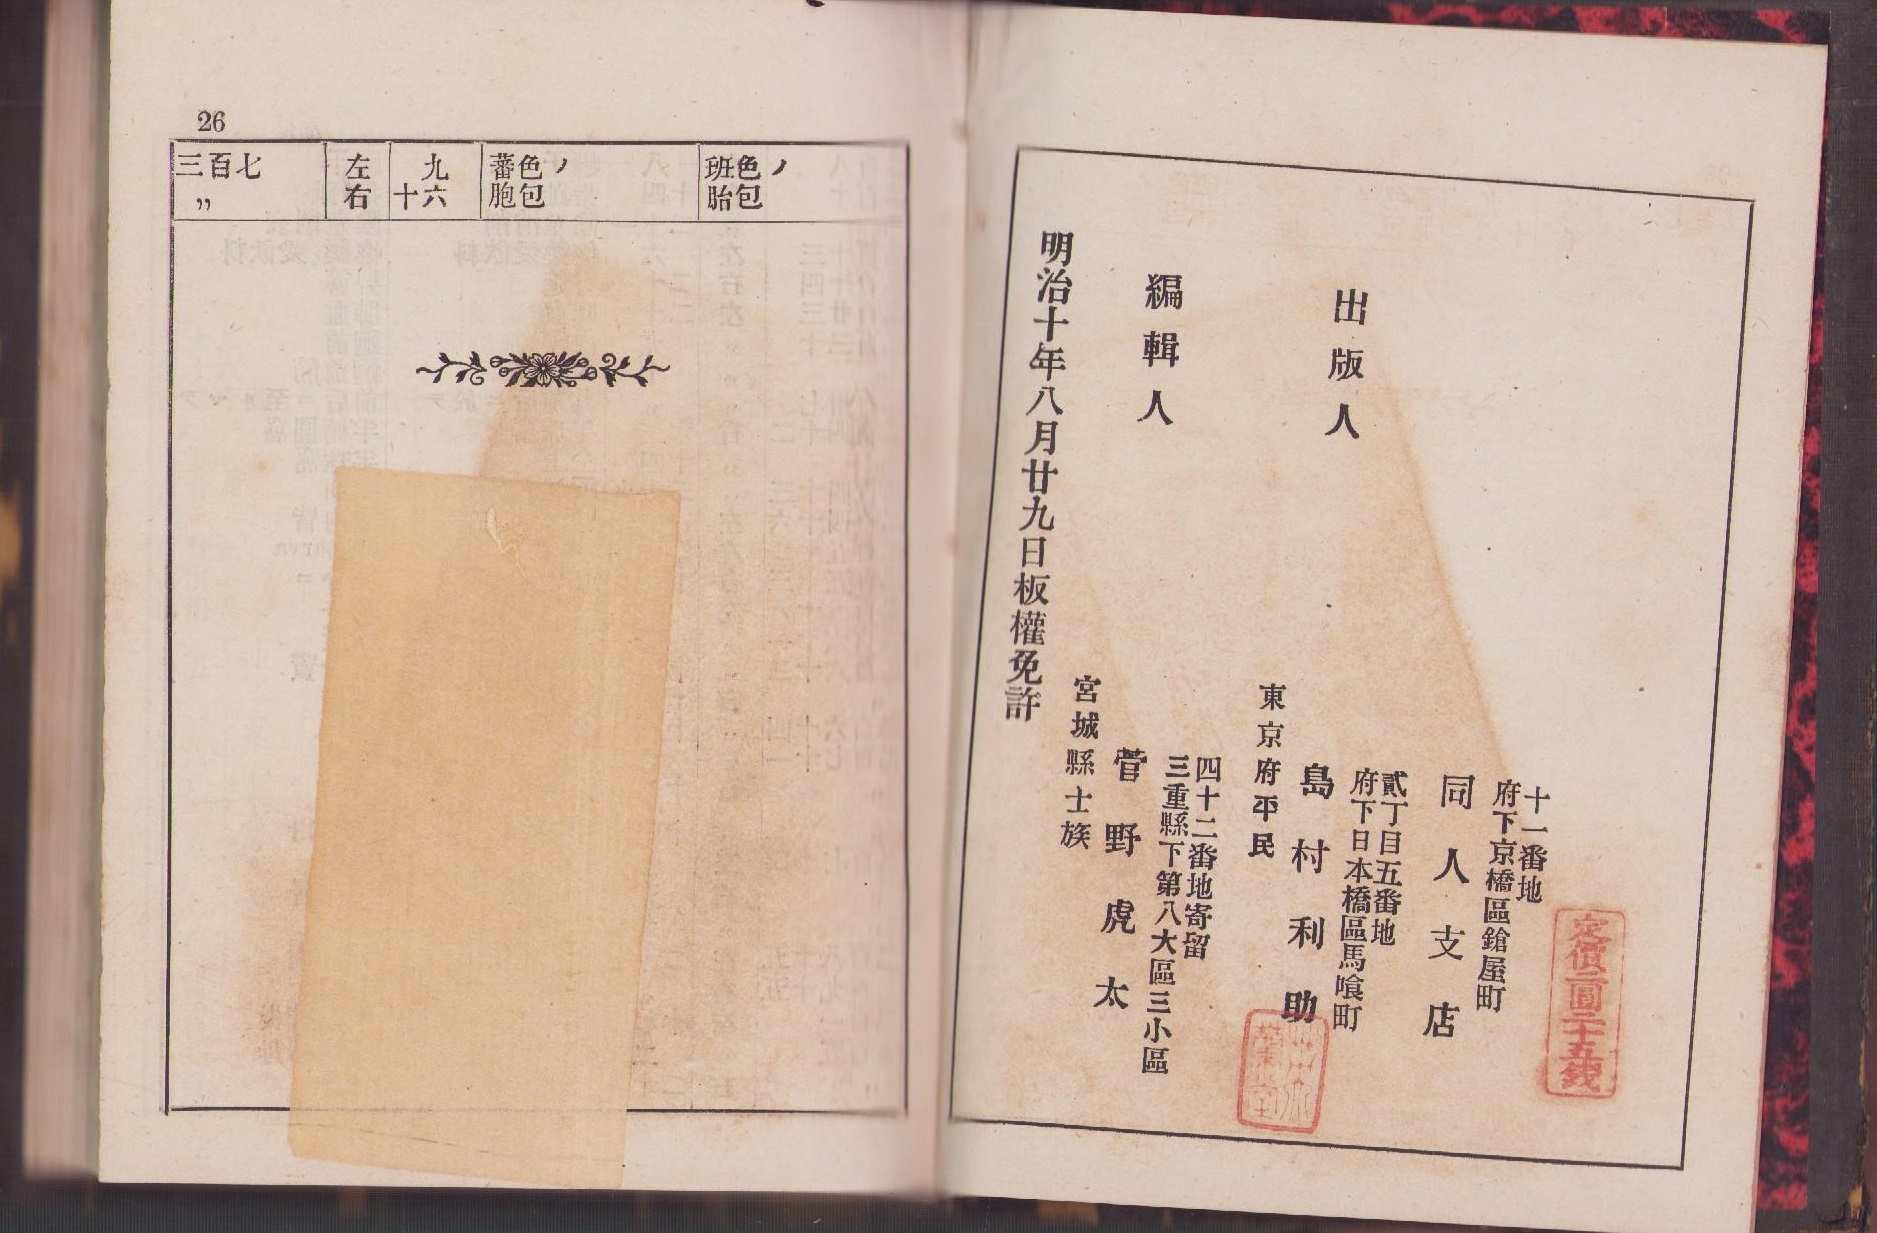 26
三百七 左 九 蕃色ノ 班色ノ
〃 右 十六 胞包 胎包
明治十年八月廿九日板權免許
編輯人
宮城縣士族
菅野虎太
三重縣下第八大區三小區
四十二番地寄留
出版人
東京府平民
島村利助
府下日本橋區馬喰町
貳丁目五番地
同人支店
府下京橋區鎗屋町
十一番地